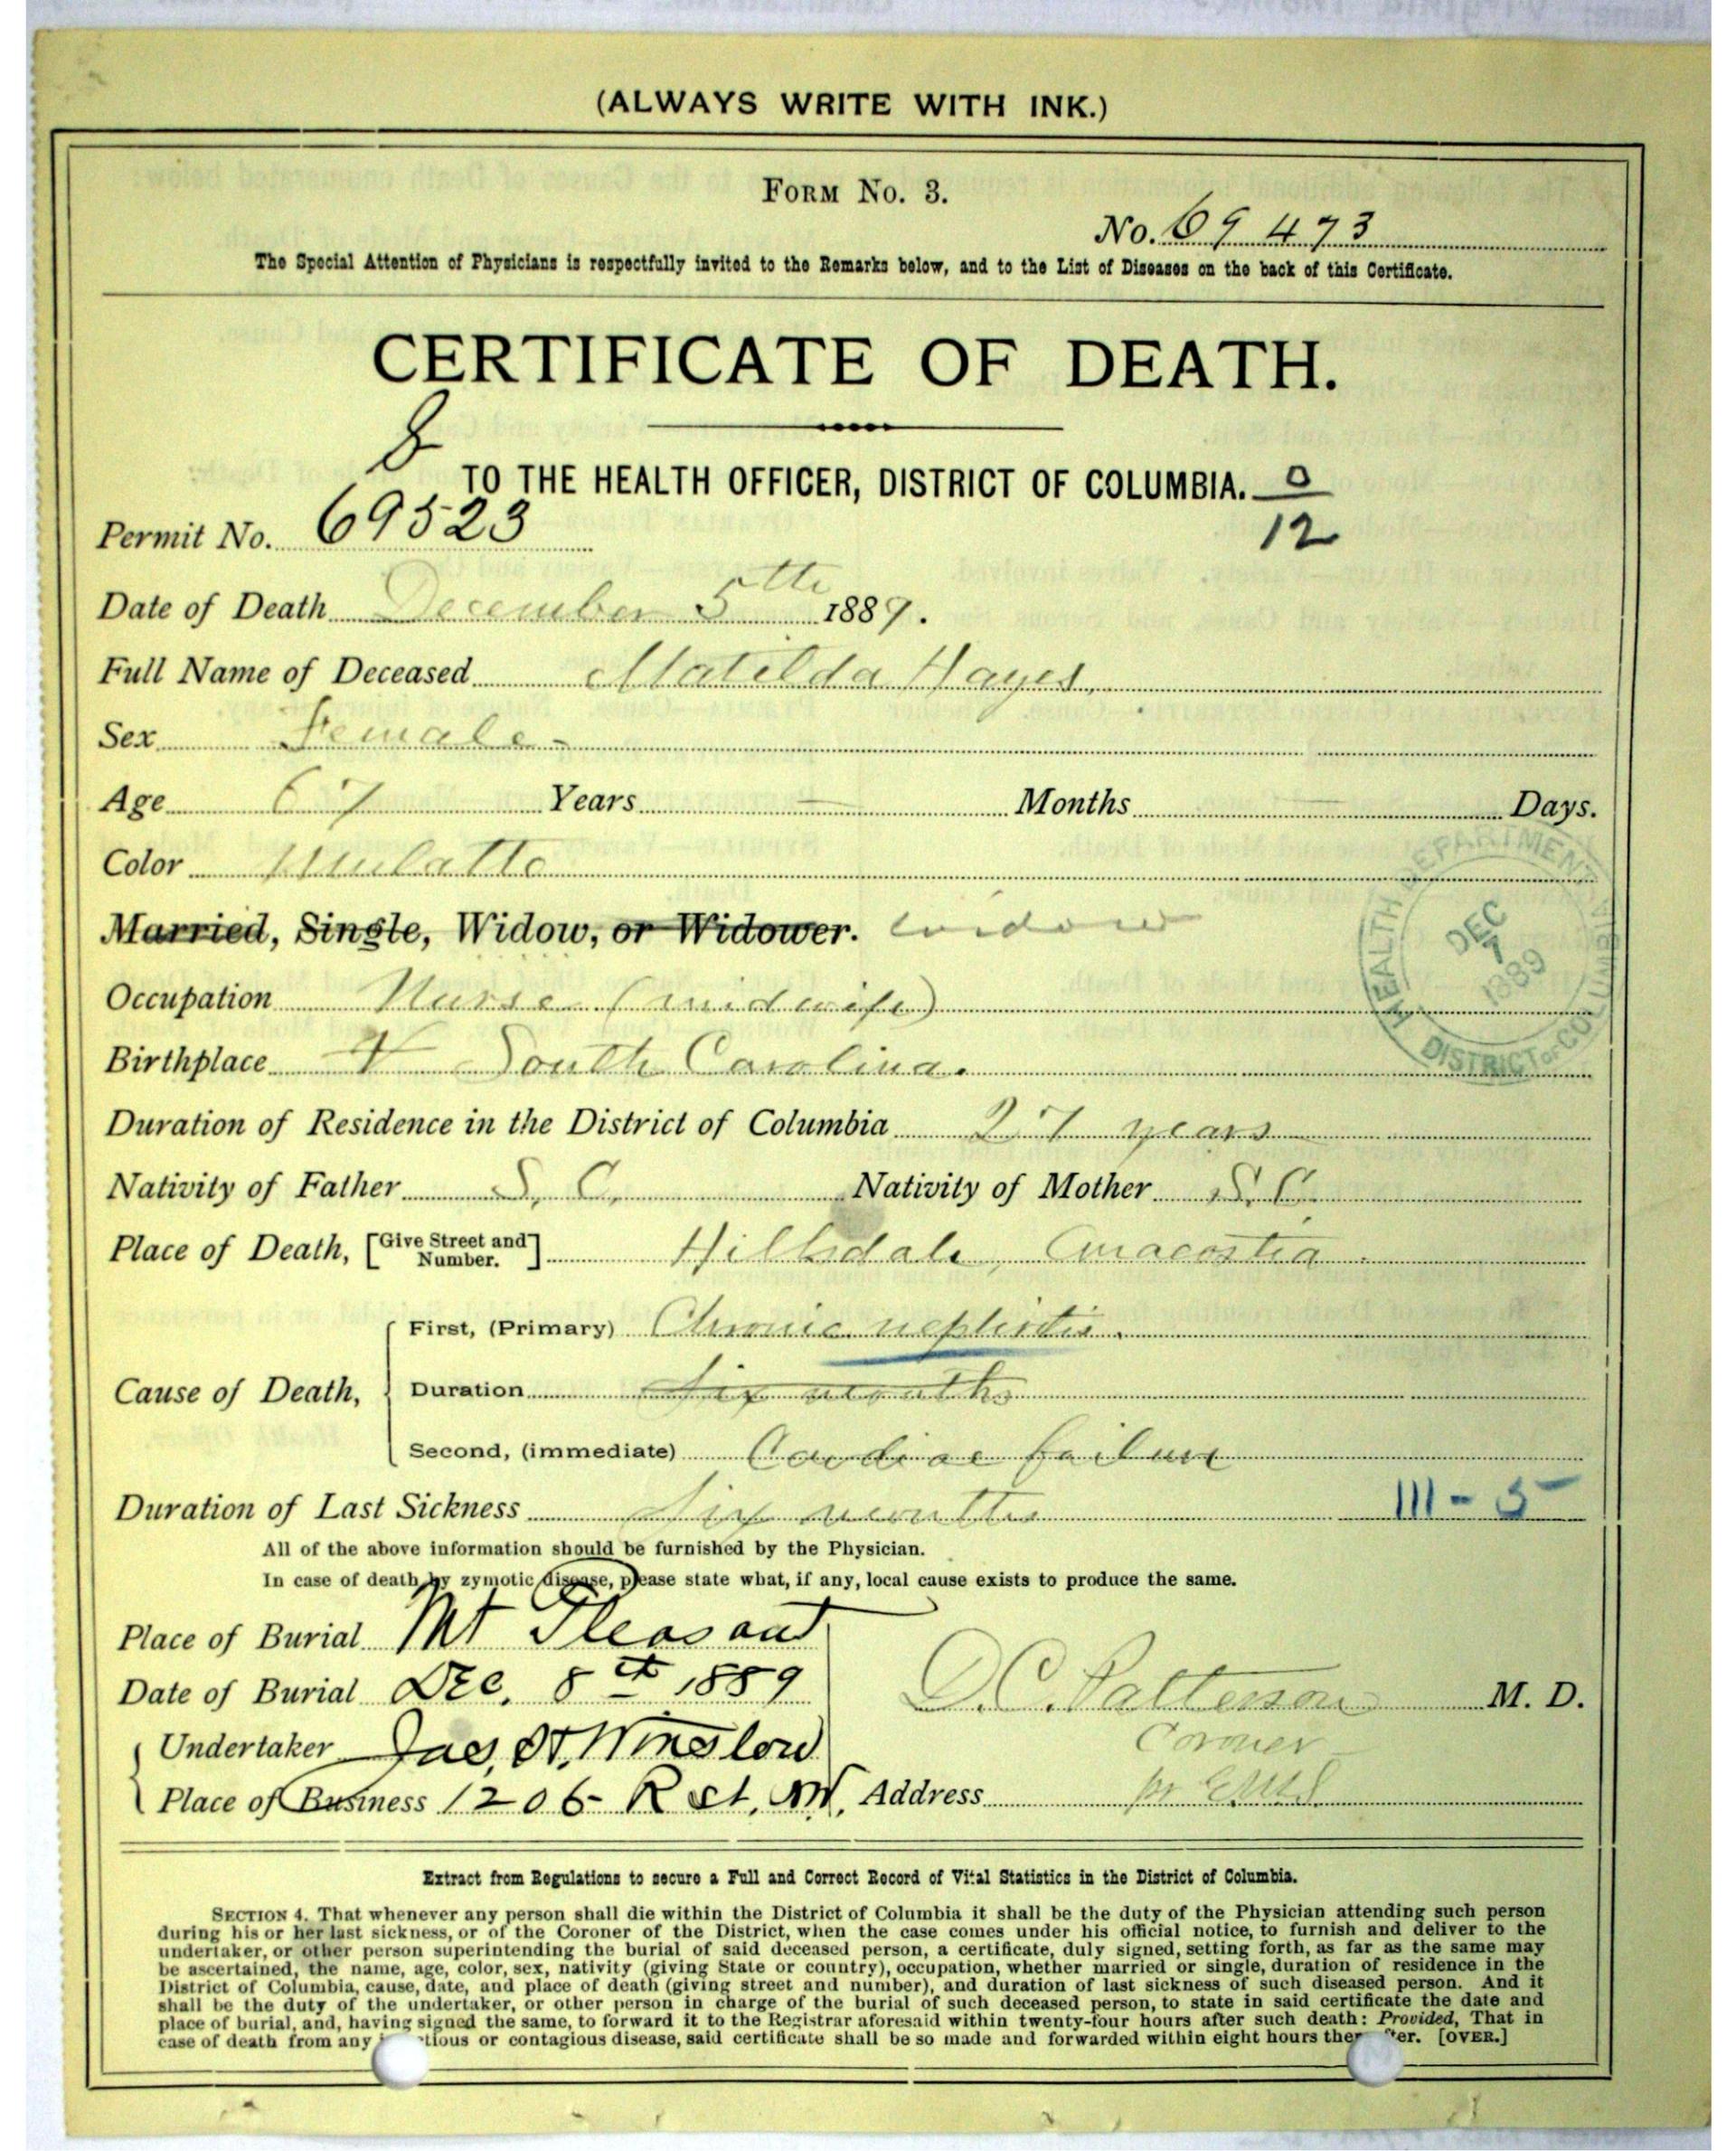 (ALWAYS WRITE WITH INK.)
FORM No. 3.
No. 69473
The Special Attention of Physicians is respectfully invited to the Remarks below, and to the List of Diseases on the back of this Certificate.
CERTIFICATE OF DEATH.
TO THE HEALTH OFFICER, DISTRICT OF COLUMBIA.
12
Permit No. 69523
Date of Death December 5th 1889.
Full Name of Deceased Matilda Hayes
Sex Female
Age 67 Years Months Days.
Color Mulatto
Married, Single, Widow, or Widower. widow
Occupation Nurse (midwife)
Birthplace South Carolina.
Duration of Residence in the District of Columbia 27 years
Nativity of Father S. C. Nativity of Mother S. C.
Place of Death, [Give Street and Number.] Hillsdale, Anacostia
First, (Primary) Chronic nephritis.
Cause of Death, Duration Six months
Second, (immediate) Cardiac failure
Duration of Last Sickness Six months III - 5
All of the above information should be furnished by the Physician.
In case of death by zymotic disease, please state what, if any, local cause exists to produce the same.
Place of Burial Mt Pleasant
Date of Burial Dec. 8th 1889
D.C. Patterson M. D.
Coroner
Undertaker Jas, H. Winslow
Place of Business 1206- R st. NW, Address
HEALTH DEPARTMENT DEC 7 1889 DISTRICT of COLUMBIA
Extract from Regulations to secure a Full and Correct Record of Vital Statistics in the District of Columbia.
SECTION 4. That whenever any person shall die within the District of Columbia it shall be the duty of the Physician attending such person
during his or her last sickness, or of the Coroner of the District, when the case comes under his official notice, to furnish and deliver to the
undertaker, or other person superintending the burial of said deceased person, a certificate, duly signed, setting forth, as far as the same may
be ascertained, the name, age, color, sex, nativity (giving State or country), occupation, whether married or single, duration of residence in the
District of Columbia, cause, date, and place of death (giving street and number), and duration of last sickness of such diseased person. And it
shall be the duty of the undertaker, or other person in charge of the burial of such deceased person, to state in said certificate the date and
place of burial, and, having signed the same, to forward it to the Registrar aforesaid within twenty-four hours after such death: Provided, That in
case of death from any tious or contagious disease, said certificate shall be so made and forwarded within eight hours ther ter. [OVER.]